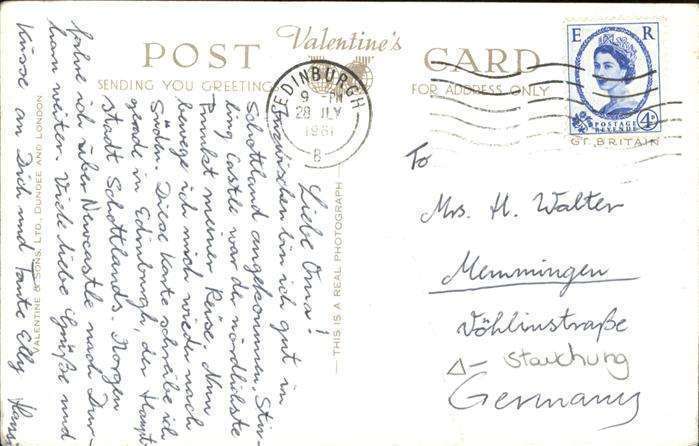 POST Valentine's CARD
SENDING YOU GREETINGS
FOR ADDRESS ONLY
EDINBURGH
9 - PM
28 JLY
1961
B
E R
POSTAGE
REVENUE
4D
GT. BRITAIN
VALENTINE & SONS, LTD., DUNDEE AND LONDON
THIS IS A REAL PHOTOGRAPH
Liebe Oma!
Inzwischen bin ich gut in
Schottland angekommen. Stir-
ling Castle war der nördlichste
Punkt meiner Reise. Nun
bewege ich mich wieder nach
Süden. Diese Karte schreibe ich
gerade in Edinburgh, der Haupt-
stadt Schottlands. Morgen
fahre ich über Newcastle nach Dur-
ham weiter. Viele liebe Grüße und
Küsse an Dich und Tante Elly
To
Mrs. H. Walter
Memmingen
Vöhlinstraße
Germany